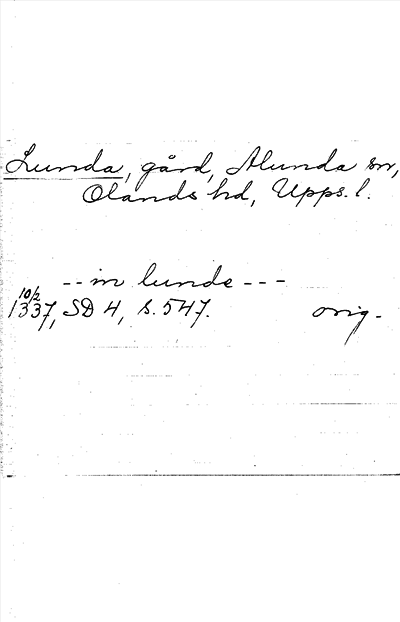 Lunda, gård, Alunda sn,
Olands hd, Upps. l.
-- in lunde ---
10/2
1337, SD 4, s. 547. orig.